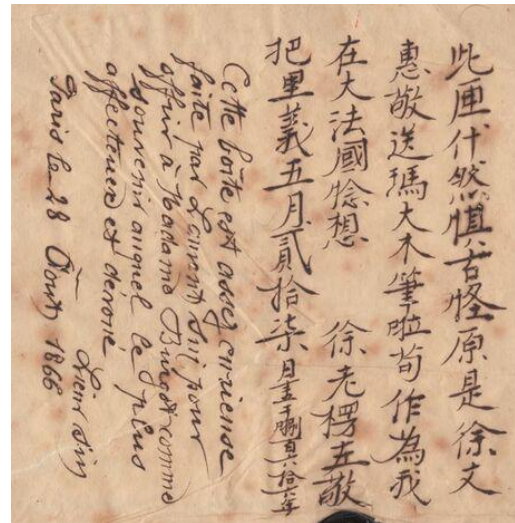 此匣什然慎古怪原是徐文
惠敬送瑪大木筆啦苟作為我
在大法國惗想 徐老楞五敬
把里義五月貳拾柒日壹千捌百六拾六年
Cette boîte est assez curieuse
faite par Laurent Sui pour
offrir à Madame comme
souvenir auquel le plus
affectueux et dévoué.
Sin
Paris le 28 Août 1866